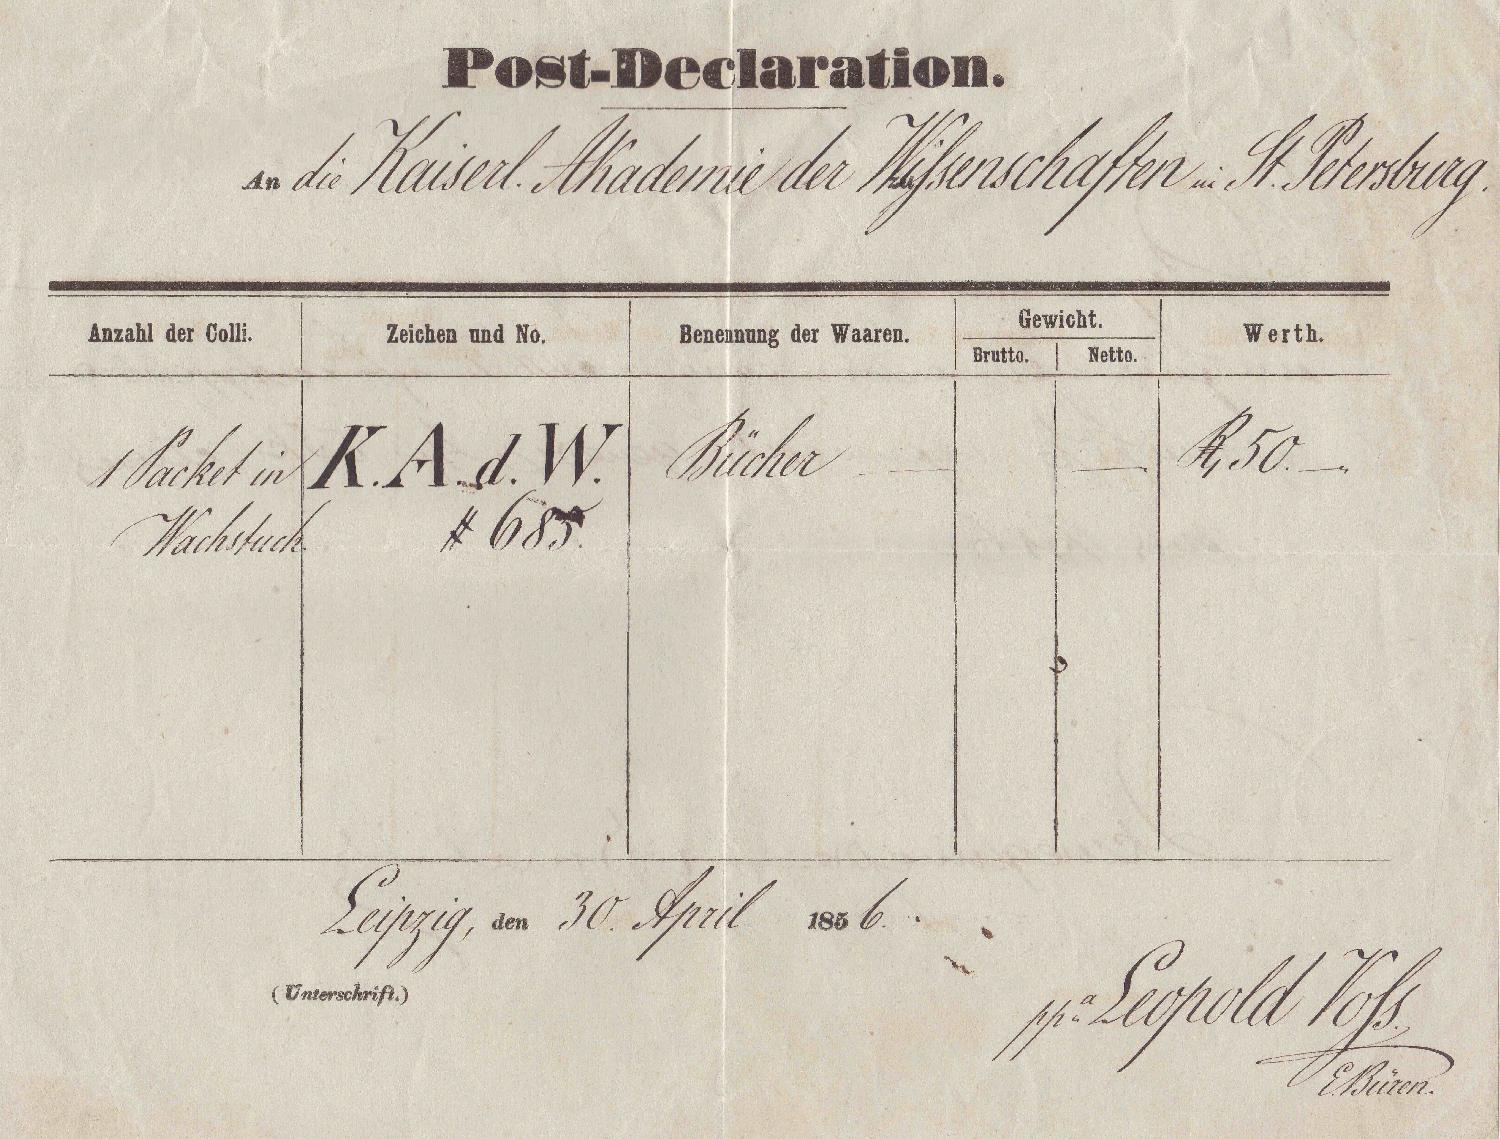 Post-Declaration.
An die Kaiserl. Akademie der Wissenschaften in St. Petersburg.
Anzahl der Colli. Zeichen und No. Benennung der Waaren. Gewicht. Werth.
Brutto. Netto.
1 Packet in K. A. d. W. Bücher — — 50. —
Wachstuch. # 685.
Leipzig, den 30. April 1856.
(Unterschrift.)
ppa Leopold Voss.
E. Büren.